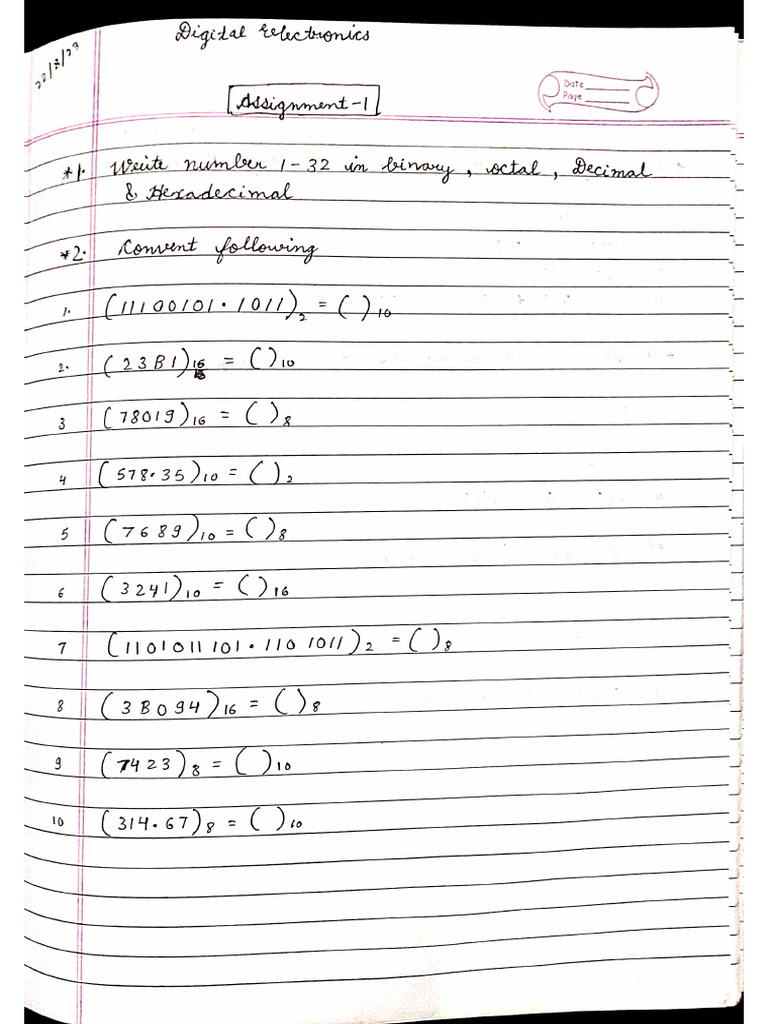 Digital Electronics
22/3/23
Assignment-1
Date
Page
*1. Write number 1-32 in binary, octal, Decimal
& Hexadecimal
*2. Convent following
1. (11100101.1011)₂ = ( )₁₀
2. (23B1)₁₆ = ( )₁₀
3 (78019)₁₆ = ( )₈
4 (578.35)₁₀ = ( )₂
5 (7689)₁₀ = ( )₈
6 (3241)₁₀ = ( )₁₆
7 (1101011101.1101011)₂ = ( )₈
8 (3B094)₁₆ = ( )₈
9 (7423)₈ = ( )₁₀
10 (314.67)₈ = ( )₁₀